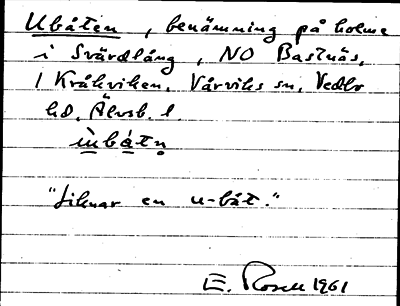 Ubåten, benämning på holme
i Svärdlång, NO Bastnäs,
i Kråkviken. Vårviks sn, Vedbo
hd, Älvsb. l.
ùbátn̥
"Liknar en u-båt."
E. Rosell 1961